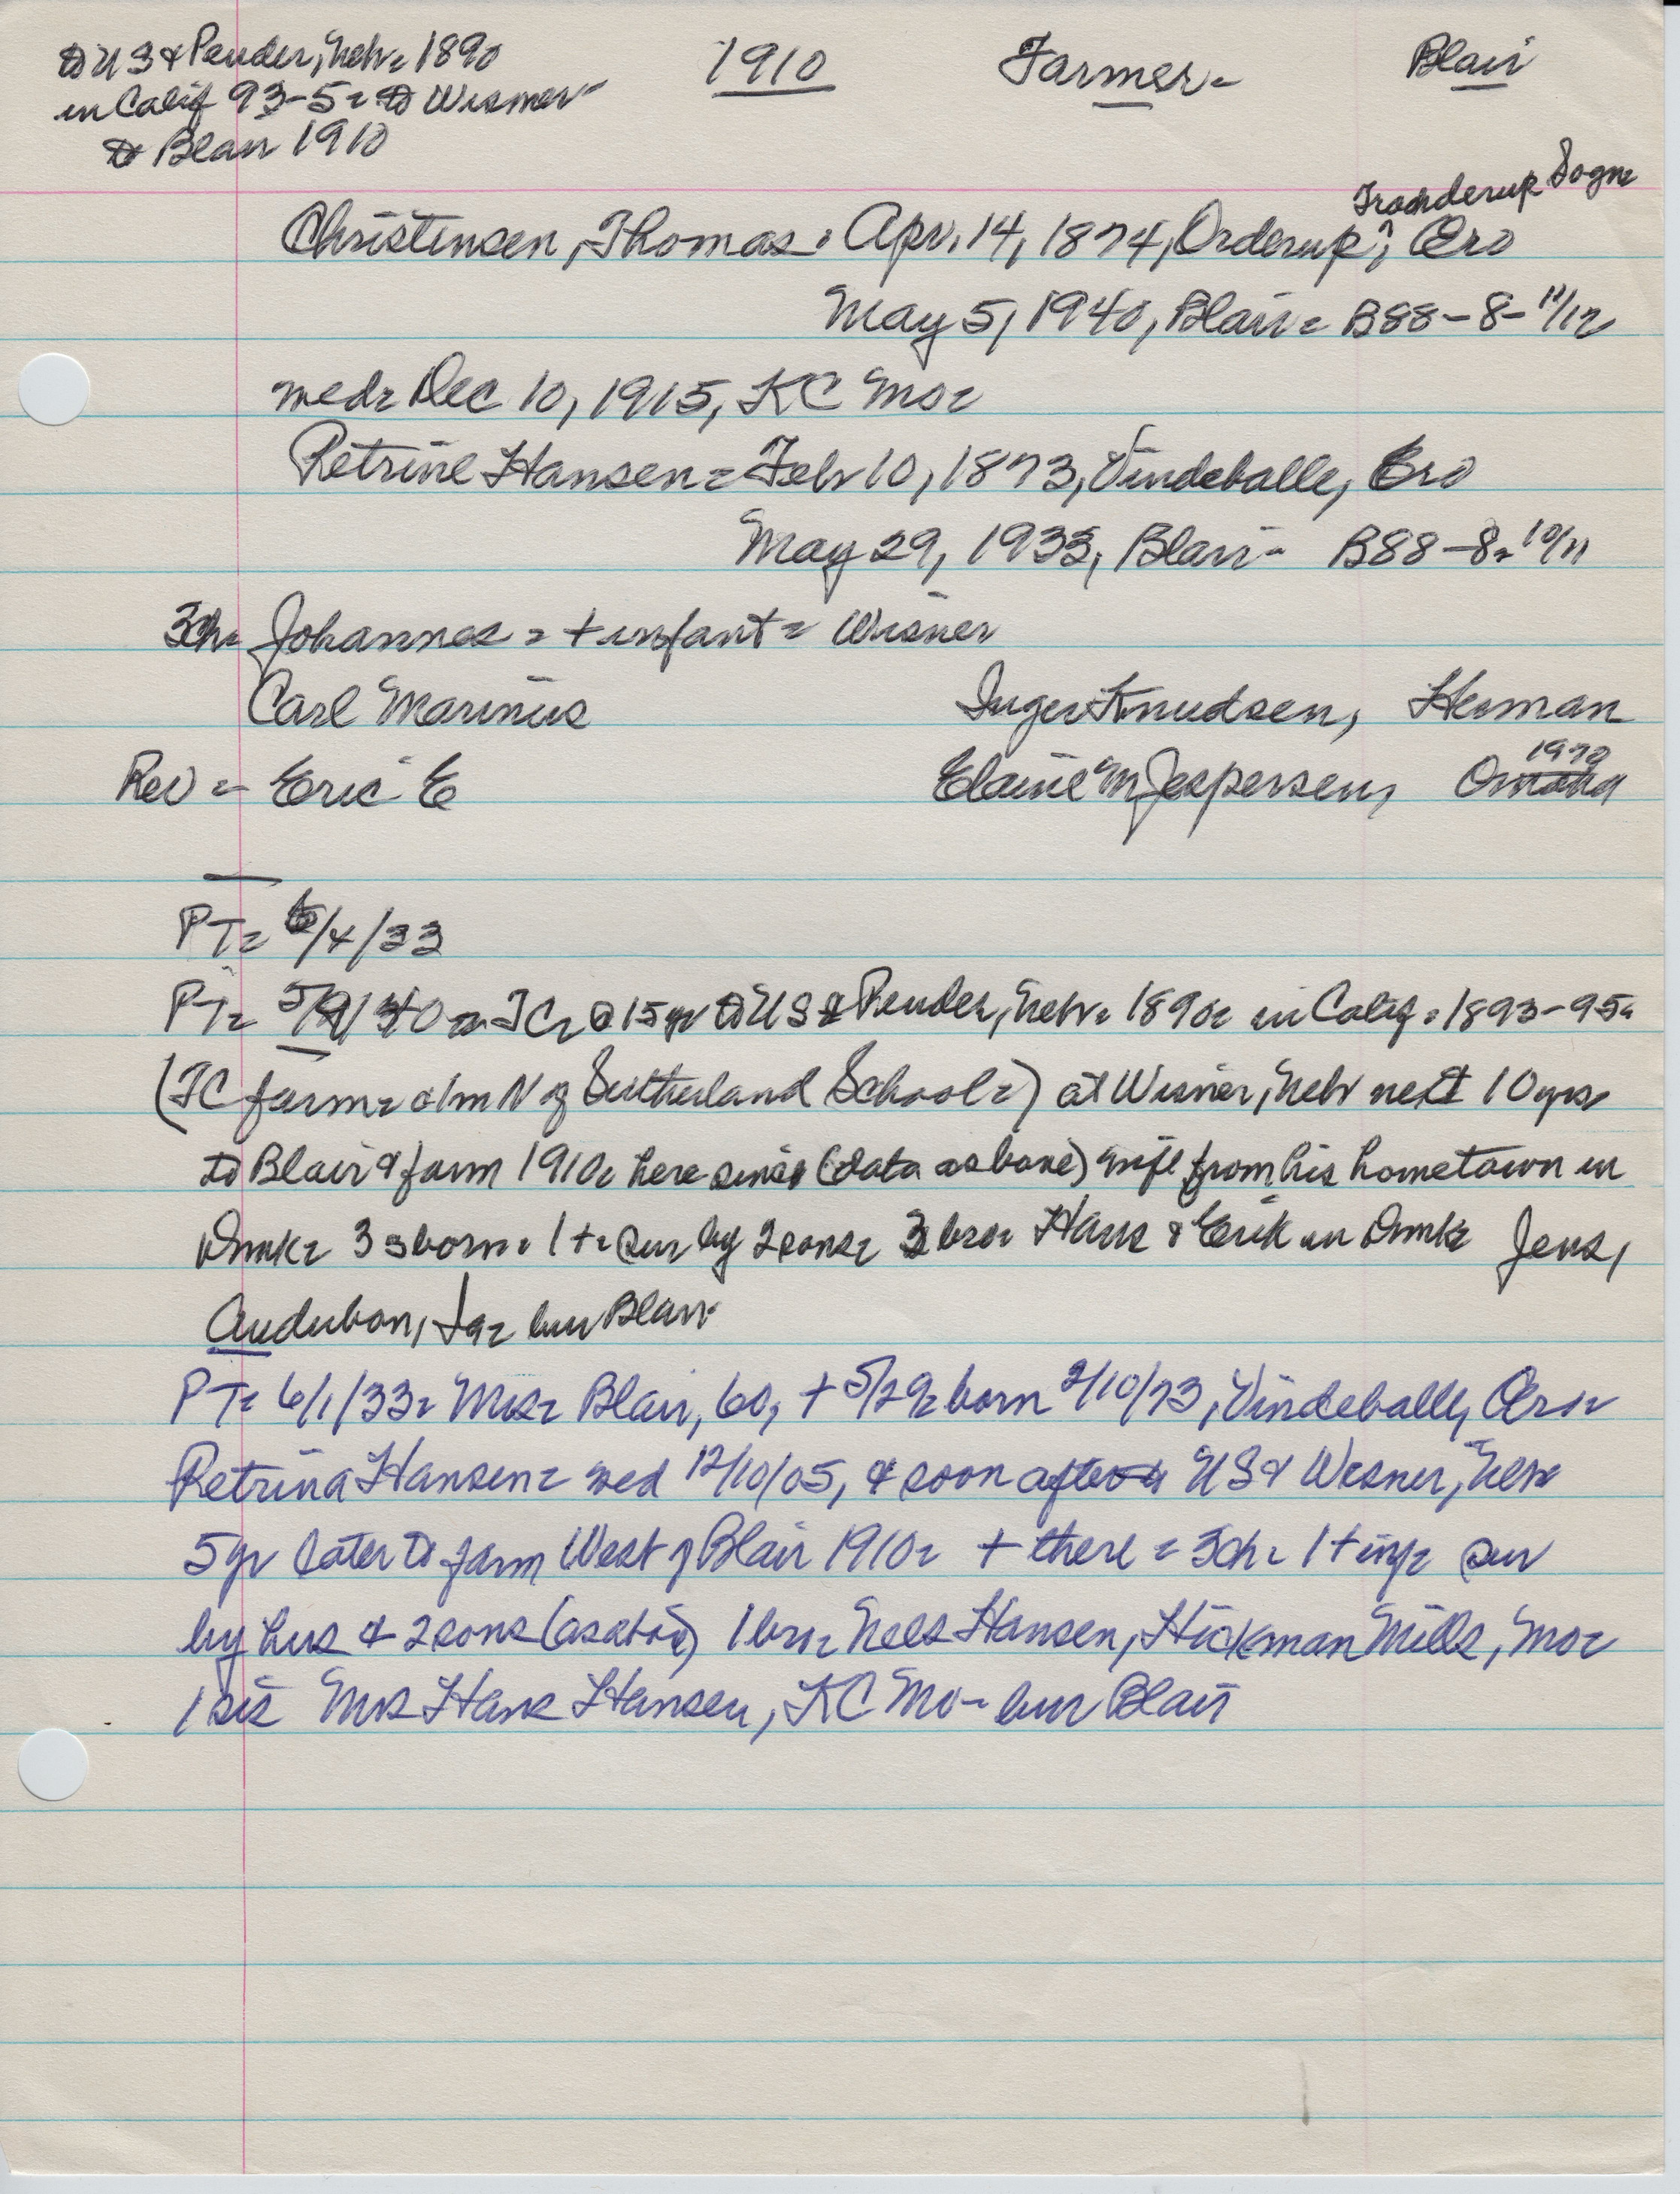 to US & Pender, Nebr = 1890
in Calif 93-5 = to Wisner
to Blair 1910
1910 Farmer - Blair
Tranderup Sogn
Christensen, Thomas. Apr. 14, 1874, Orderup?, Æro
May 5, 1940, Blair = B88-8-11/12
wed = Dec 10, 1915, KC Mo =
Petrine Hansen = Feb 10, 1873, Vindeballe, Ero
May 29, 1933, Blair - B88-8 = 10/11
3ch = Johannes = + infant = Wisner
Carl Marinus Inger Knudsen, Herman
1970
Rev = Eric E Elaine M Jespersen, Omaha
PT = 6/4/33
PT = 40 = TC = @ 15 yr to US & Pender, Nebr = 1890 = in Calif = 1893-95 =
(TC farm = N of Sutherland School =) at Wisner, Nebr next 10 yrs
to Blair & farm 1910 = here since (data as bove) wife from his hometown in
Dnmk = 3 s born = 1 + = sur by 2 sons = 3 bro = Hans & Erik in Dnmk Jens,
Audubon, Ia = bur Blair
PT = 6/1/33 = Mrs = Blair, 60, + 5/29 = born 2/10/73, Vindeballe, Æro =
Petrina Hansen = wed 12/10/05, & soon after US & Wisner, Nebr
5 yr later to farm West of Blair 1910 = + there = 3ch = 1 + inf = sur
by hus & 2 sons 1 bro = Nels Hansen, Hickman Mills, Mo =
1 sis Mrs Hans Hansen, KC Mo - bur Blair